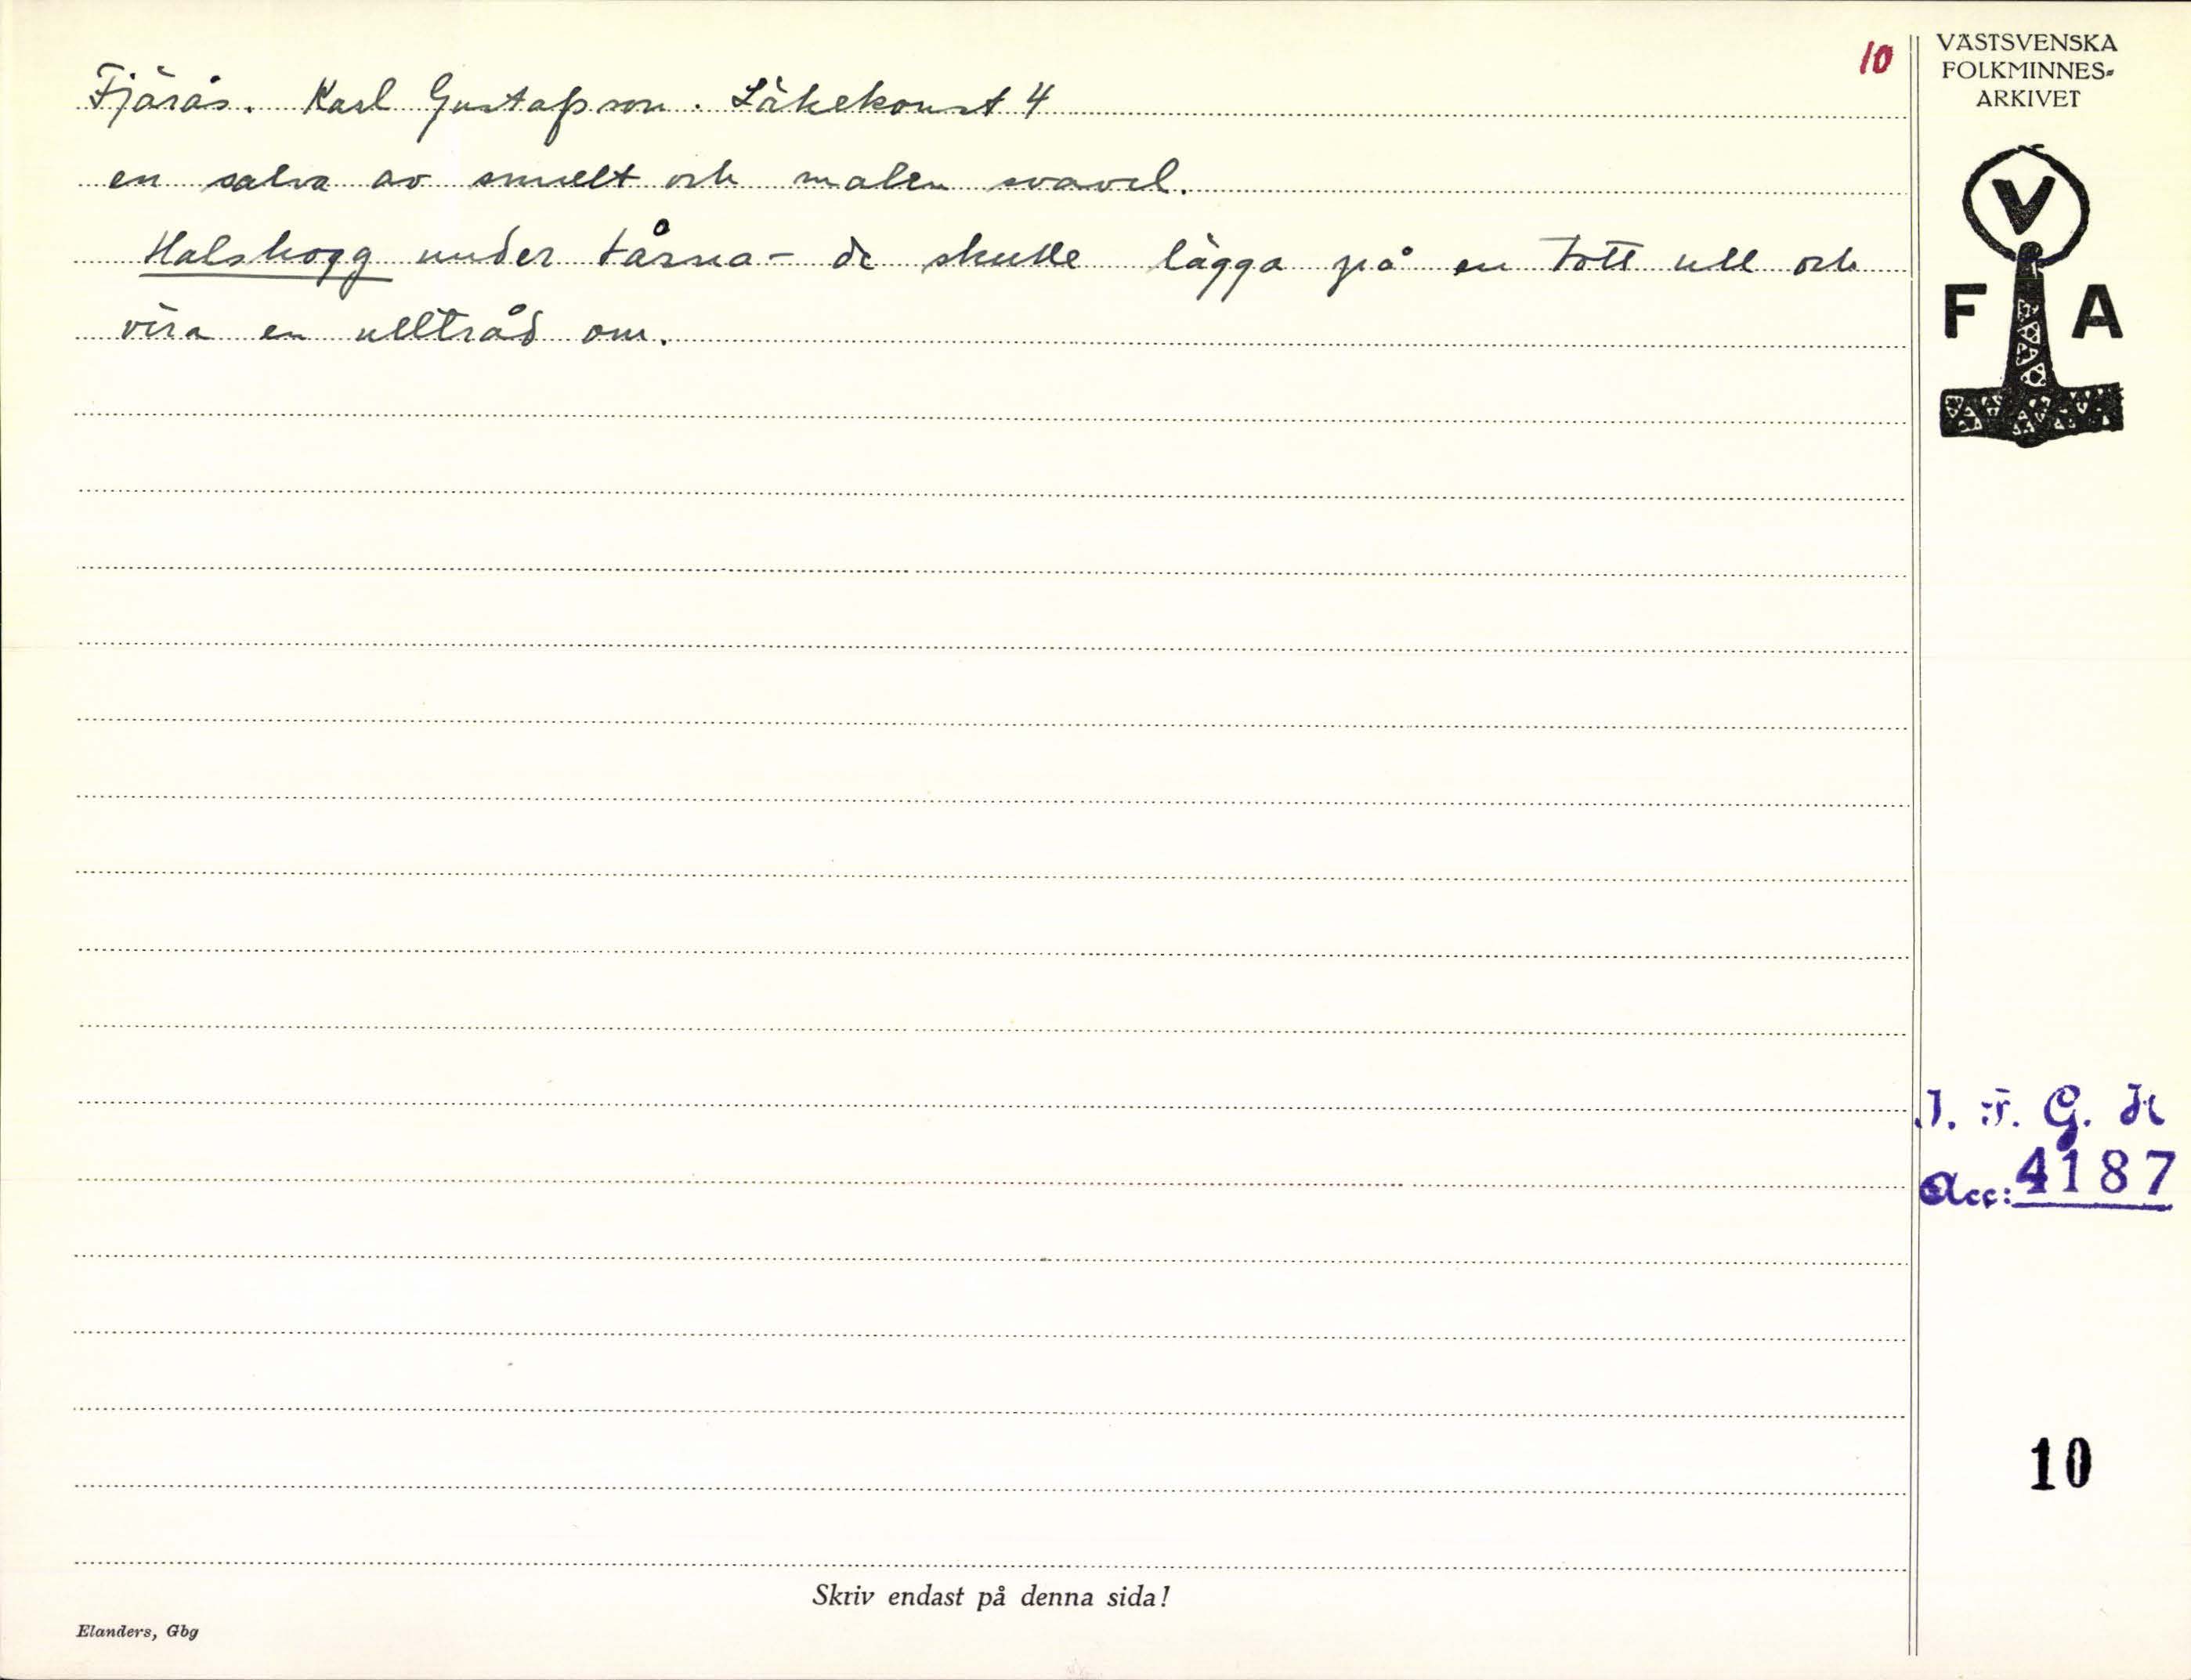 10
Fjärås. Karl Gustafsson. Läkekonst 4
en salva av smält och malen svavel.
Halshogg under tårna - de skulle lägga på en tott ull och
vira en ulltråd om.
VÄSTSVENSKA
FOLKMINNES-
ARKIVET
V
F A
I. F. G. H
Acc: 4187
10
Skriv endast på denna sida!
Elanders, Gbg